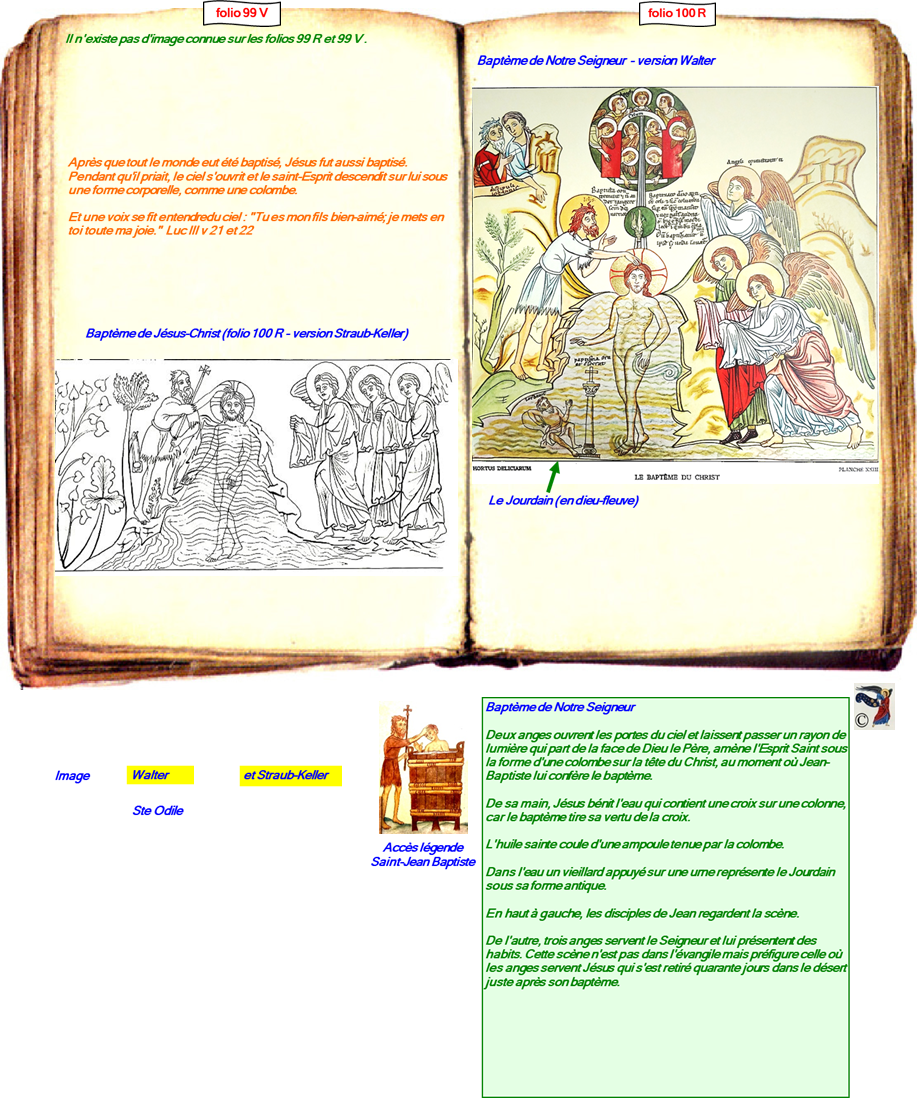 folio 99 V
Il n'existe pas d'image connue sur les folios 99 R et 99 V .
Après que tout le monde eut été baptisé, Jésus fut aussi baptisé.
Pendant qu'il priait, le ciel s'ouvrit et le saint-Esprit descendit sur lui sous
une forme corporelle, comme une colombe.
Et une voix se fit entendredu ciel : "Tu es mon fils bien-aimé; je mets en
toi toute ma joie." Luc III v 21 et 22
Baptème de Jésus-Christ (folio 100 R - version Straub-Keller)
folio 100 R
Baptème de Notre Seigneur - version Walter
HORTUS DELICIARUM
LE BAPTÊME DU CHRIST
PLANCHE XXIII
Le Jourdain (en dieu-fleuve)
Image
Walter
et Straub-Keller
Ste Odile
Accès légende
Saint-Jean Baptiste
©
Baptème de Notre Seigneur
Deux anges ouvrent les portes du ciel et laissent passer un rayon de
lumière qui part de la face de Dieu le Père, amène l'Esprit Saint sous
la forme d'une colombe sur la tête du Christ, au moment où Jean-
Baptiste lui confère le baptème.
De sa main, Jésus bénit l'eau qui contient une croix sur une colonne,
car le baptème tire sa vertu de la croix.
L'huile sainte coule d'une ampoule tenue par la colombe.
Dans l'eau un vieillard appuyé sur une urne représente le Jourdain
sous sa forme antique.
En haut à gauche, les disciples de Jean regardent la scène.
De l'autre, trois anges servent le Seigneur et lui présentent des
habits. Cette scène n'est pas dans l'évangile mais préfigure celle où
les anges servent Jésus qui s'est retiré quarante jours dans le désert
juste après son baptème.